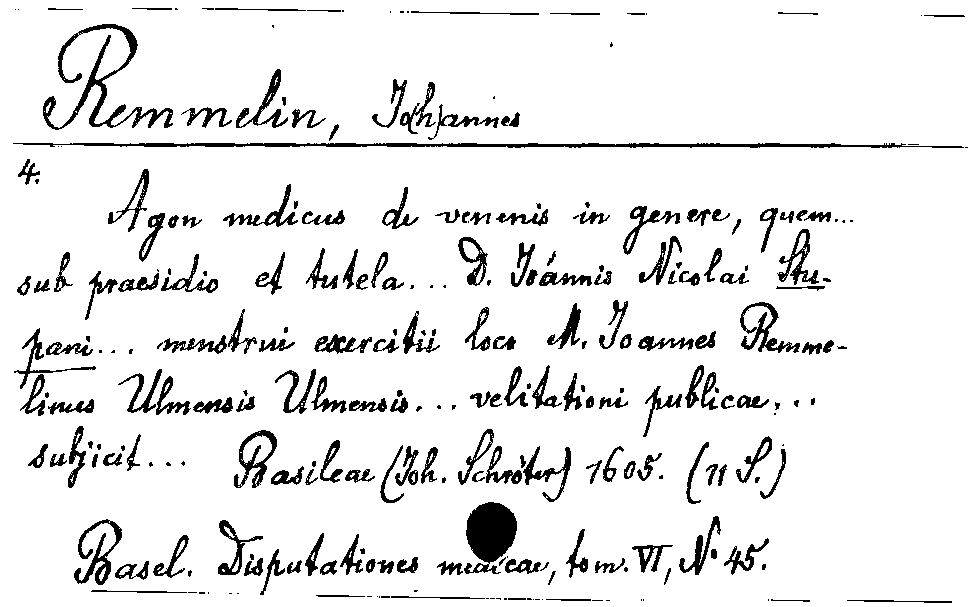 Remmelin, Jo(h)annes
4.
Agon medicus de venenis in genere, quem...
sub praesidio et tutela... D. Joánnis Nicolai Stu-
pani... menstrui exercitii loco M. Joannes Remme-
linus Ulmensis Ulmensis... velitationi publicae...
subjicit... Basileae (Joh. Schröter) 1605. (11 S.)
Basel. Disputationes medicae, tom. VI, No 45.